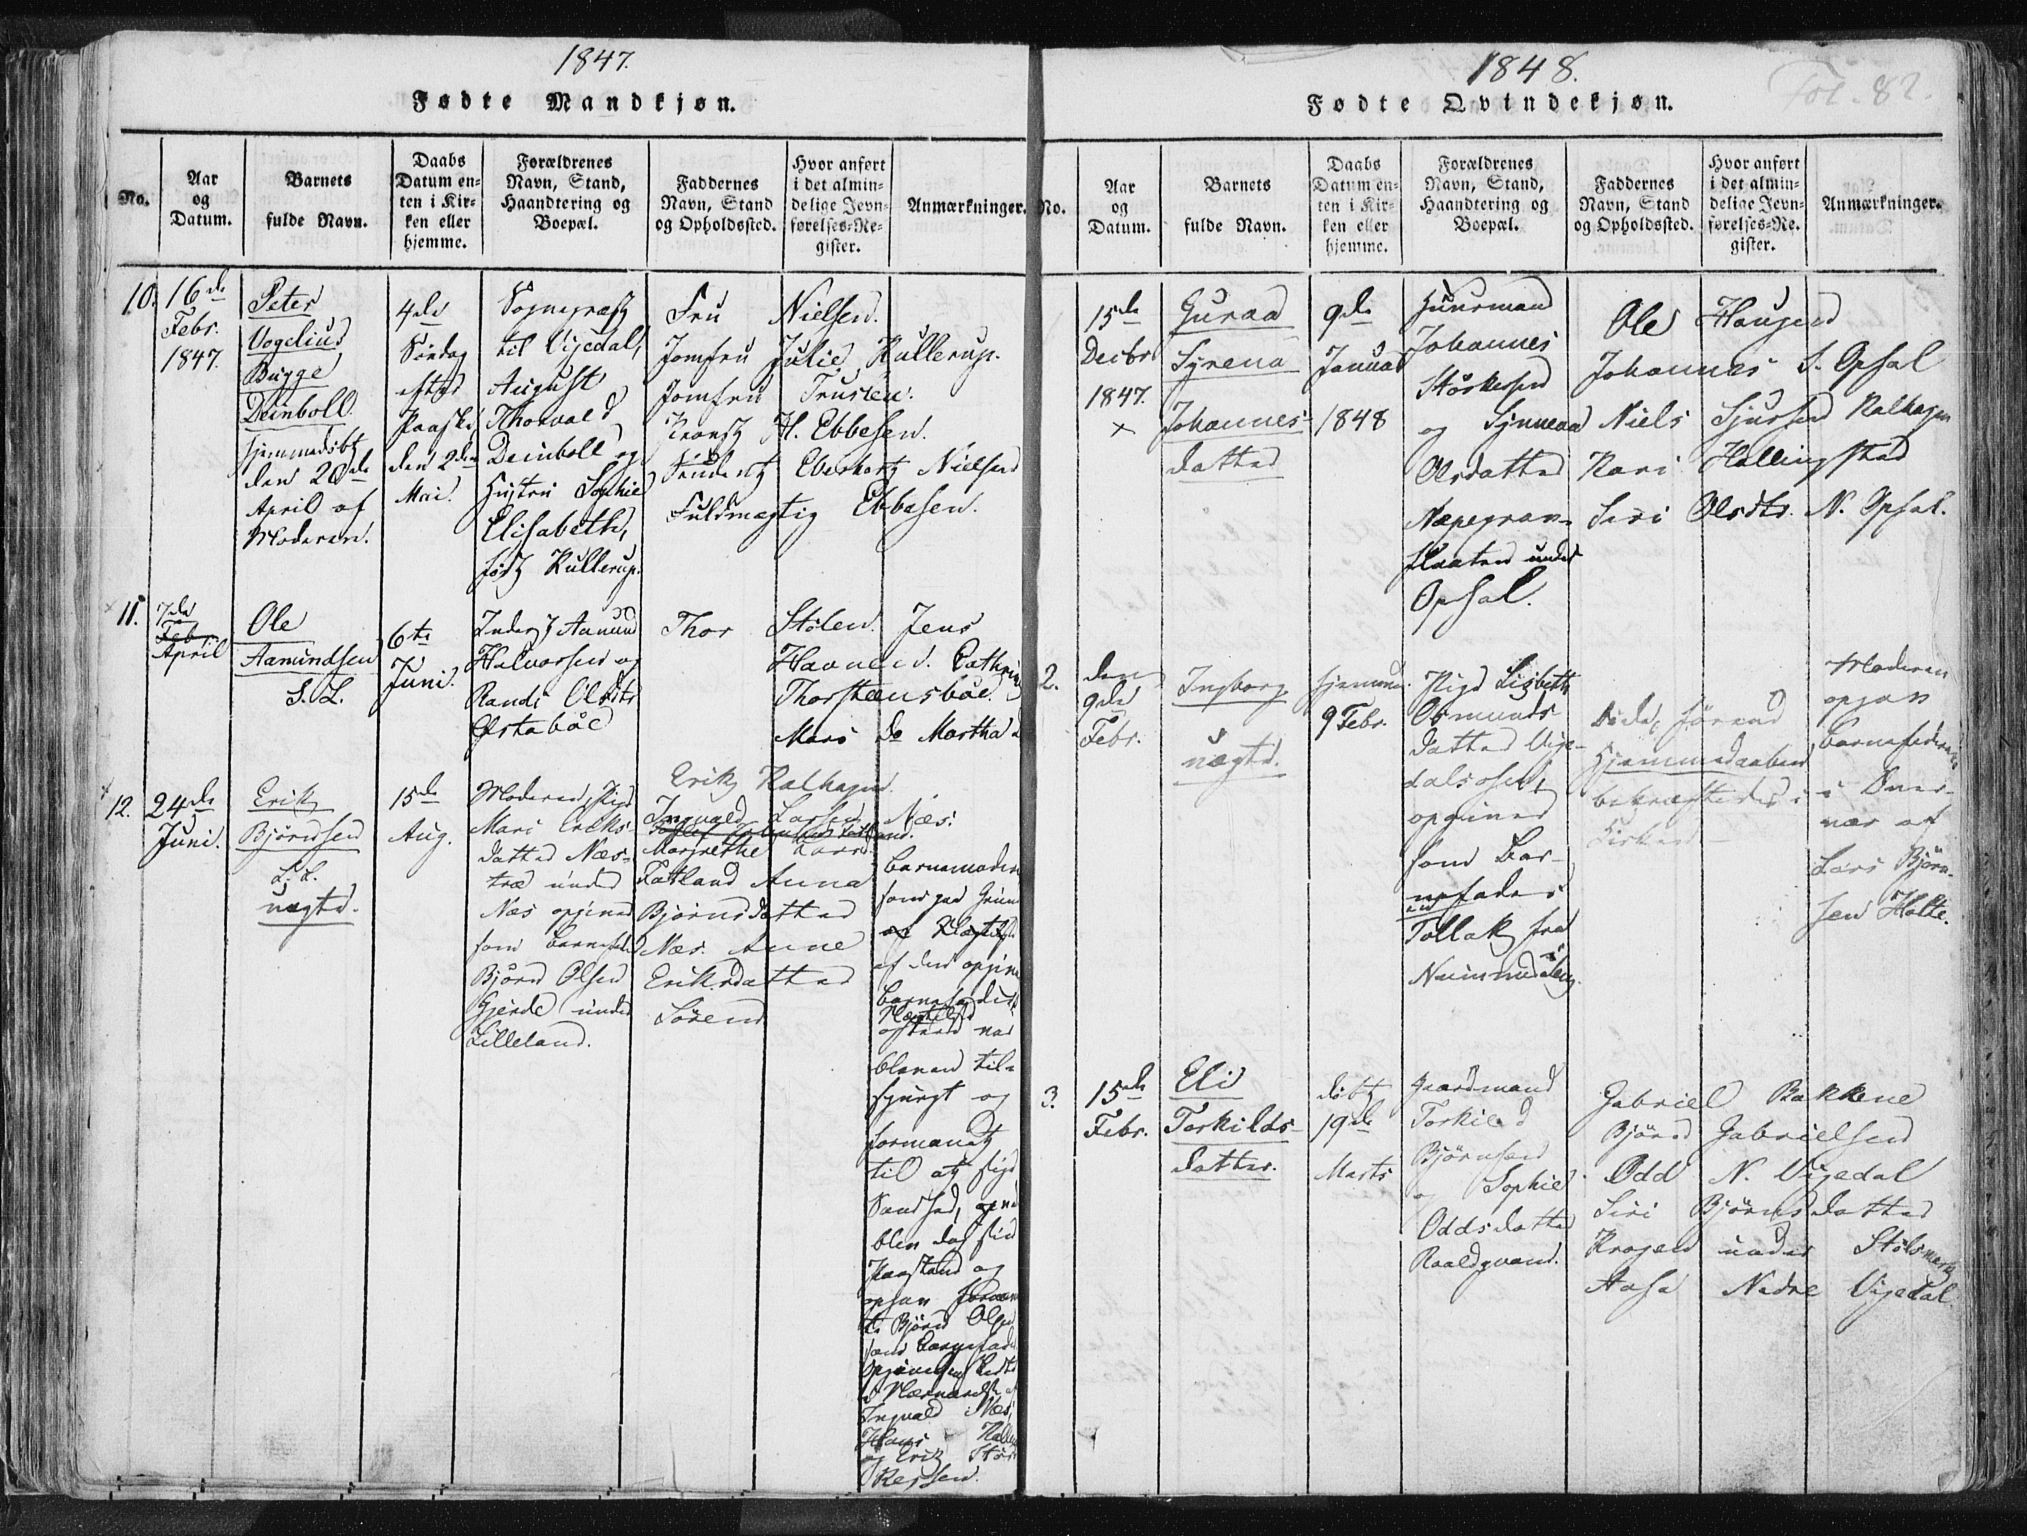 1847.
Fødte Mandkjøn.
No.
Aar
og
Datum.
Barnets
fulde Navn.
Daabs
Datum en-
ten i Kir-
ken eller
hjemme.
Forældrenes
Navn, Stand,
Haandtering og
Boepæl.
Faddernes
Navn, Stand
og Opholdssted.
Hvor anført
i det almin-
delige Jevn-
førelses-Re-
gister.
Anmærkninger.
10.
16de
Febr.
1847.
Peter
Vogelius
Bugge
Deinboll.
hjemmedøbt
den 28de
April af
Moderen.
4de
Søndag
efter
Paaske
den 2den
Mai.
Sognepræst
til Vigedal,
August
Thorvald
Deinboll og
Hustru Sophie
Elisabeth,
født Kullerup.
Fru Nielsen.
Jomfru Julie Kullerup.
Jomfru
H. Ebbesen.
Student Eberhart Nielsen
Fuldmægtig Ebbesen.
11.
7de
Febr.
April
Ole
Aamundsen
S. L.
6te
Juni.
Aamund
Halvorsen og
Randi Olsdtr
Østabøe
Thor Stølen. Jens
Havnen. Cathrine
Thorsteensbøe.
Mari do Martha do
12.
24de
Juni.
Erik
Bjørnsen
L. L.
uægte.
15de
Aug.
Moderen, Pige
Mari Eriks-
datter Næs-
træ under
Næs opgiver
som Barnefader
Bjørn Olsen
Gjerde under
Lilleland.
Erik Kalhagen.
Ingvald Larsen Næs.
Margrethe Lars
Fatland Anna
Bjørnsdatter
Næs. Anne
Eriksdatter
Søren
Barnemoderen
som gav Grund
af den opgivne
Barnefader
Nægtelse
bleven til-
spurgt og
formanet
til at sige
Sandhed,
blev ved sin
Paastand og
opgav
Bjørn Olsen
som Barnefader
Ingvald Næs,
Hans
og Erik Stør-
kersen.
1848.
Fol. 82.
Fødte Qvindekjøn.
No.
Aar
og
Datum.
Barnets
fulde Navn.
Daabs
Datum en-
ten i Kir-
ken eller
hjemme.
Forældrenes
Navn, Stand,
Haandtering og
Boepæl.
Faddernes
Navn, Stand
og Opholdssted.
Hvor anført
i det almin-
delige Jevn-
førelses-Re-
gister.
Anmærkninger.
15de
Decbr
1847.
×
Guraa
Syrena
Johannes-
datter
9de
Januar
1848
Huusmand
Johannes
Størkersen
og Synneva
Olsdatter
Næpegrav-
flaaten under
Opsal.
Ole Haugen
Johannes S. Opsal
Niels Sjursen Kalhagen
Kari Hallingstad
Siri Olsdtr. N. Opsal.
2.
den
9de
Febr.
Ingborg
uægte.
hjemme.
9 Febr.
Pige Lisbeth
Osmunds
datter Vige-
dalsosen,
opgiver
som Bar-
nefader
Tollak fra
Nummedalen.
Døde, førend
Hjemmedaaben
bekræftedes i
Kirken
Moderen
opgav
Barnefaderen
i Over-
vær af
Lars Bjørn-
sen Holte.
3.
15de
Febr.
Eli
Torkilds-
datter.
døbt
19de
Marts
Gaardmand
Torkild
Bjørnsen
og Sophie
Oddsdatter
Raaldqvam.
Gabriel Bakkene
Bjørn Gabrielsen
Odd N. Vigedal
Siri Bjørnsdatter
Krogen under Stølsmark
Aasa Nedre Vigedal.